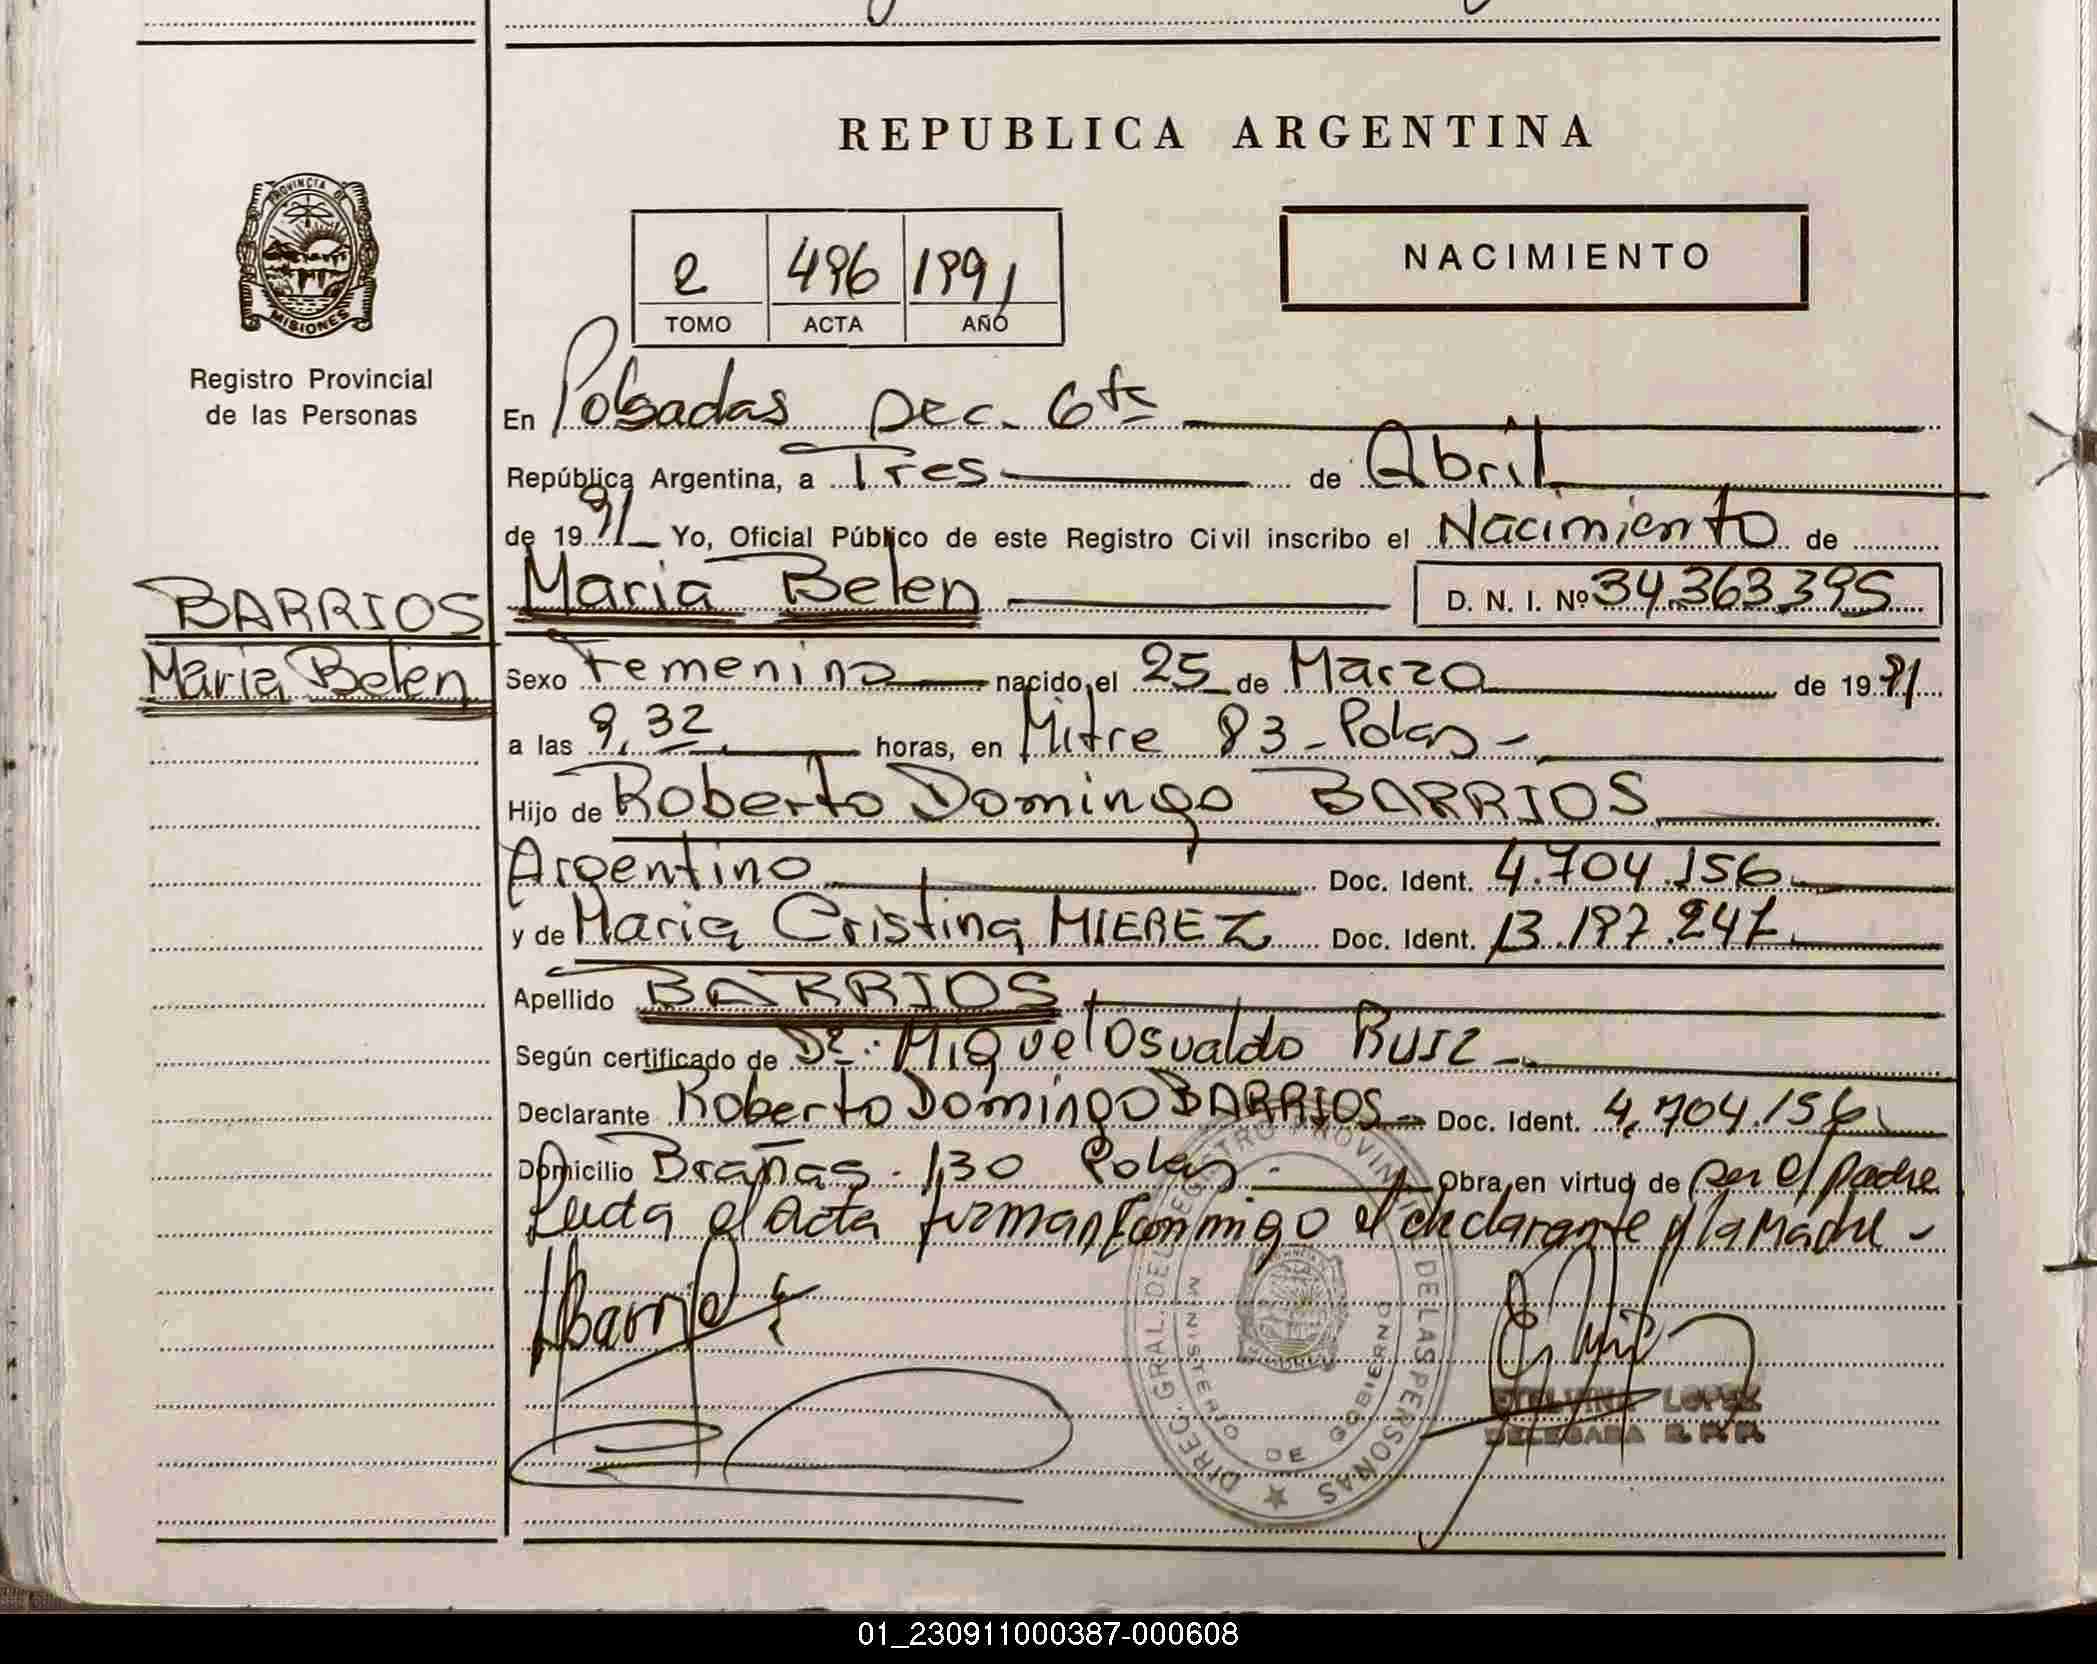 REPUBLICA ARGENTINA
NACIMIENTO
2 496 1991
TOMO ACTA AÑO
PROVINCIA DE
MISIONES
Registro Provincial
de las Personas
En Posadas Sec. 6ta
República Argentina, a Tres de Abril
de 1991 Yo, Oficial Público de este Registro Civil inscribo el Nacimiento de
BARRIOS
Maria Belen
Maria Belen D. N. I. Nº 34.363.395
Sexo Femenino nacido el 25 de Marzo de 1991
a las 9,32 horas, en Mitre 83 - Pdas -
Hijo de Roberto Domingo BARRIOS
Argentino Doc. Ident. 4.704.156
y de Maria Cristina MIEREZ Doc. Ident. 13.197.247
Apellido BARRIOS
Según certificado de Dr. Miguel Osvaldo RUIZ -
Declarante Roberto Domingo BARRIOS - Doc. Ident. 4.704.156
Domicilio Brañas. 130 Pdas. Obra en virtud de ser el padre
Leida el Acta firman conmigo el declarante y la Madre -
DIREC. GRAL. DEL REGISTRO PROVINCIAL DE LAS PERSONAS
MINISTERIO DE GOBIERNO
LOPEZ
DELEGADA R. P. P.
01_230911000387-000608